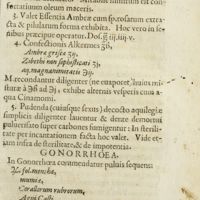 testationum oleum materis.
3. Valet Essentia Ambræ cum sp. rosarum extra-
cta & pilularum forma exhibita. Hoc vero in se-
nibus præcipue operatur. Dos. gr. iij. iiij. v.
4. Confectionis Alkermes
Ambræ griseæ
Zibethi non sophisticati
aq. magnanimitatis
M. secundum diligenter (ne evaporet,
mistura à ad exhibe alternis vesperis cum a-
qua Cinamomi.
5. Pudenda (cujusque sexus) decocto aquilegiæ
simplicis diligenter laventur & dente demortui
pulverisato super carbones fumigentur: In sterilita-
te per incantationem facta hoc valet. Vide et-
iam infra de sterilitate, & de impotentia.
GONORRHOEA.
In Gonorrhœa commendatur pulvis sequens:
fol. menthæ,
mumiæ,
Corallorum rubrorum,
Agni Casti